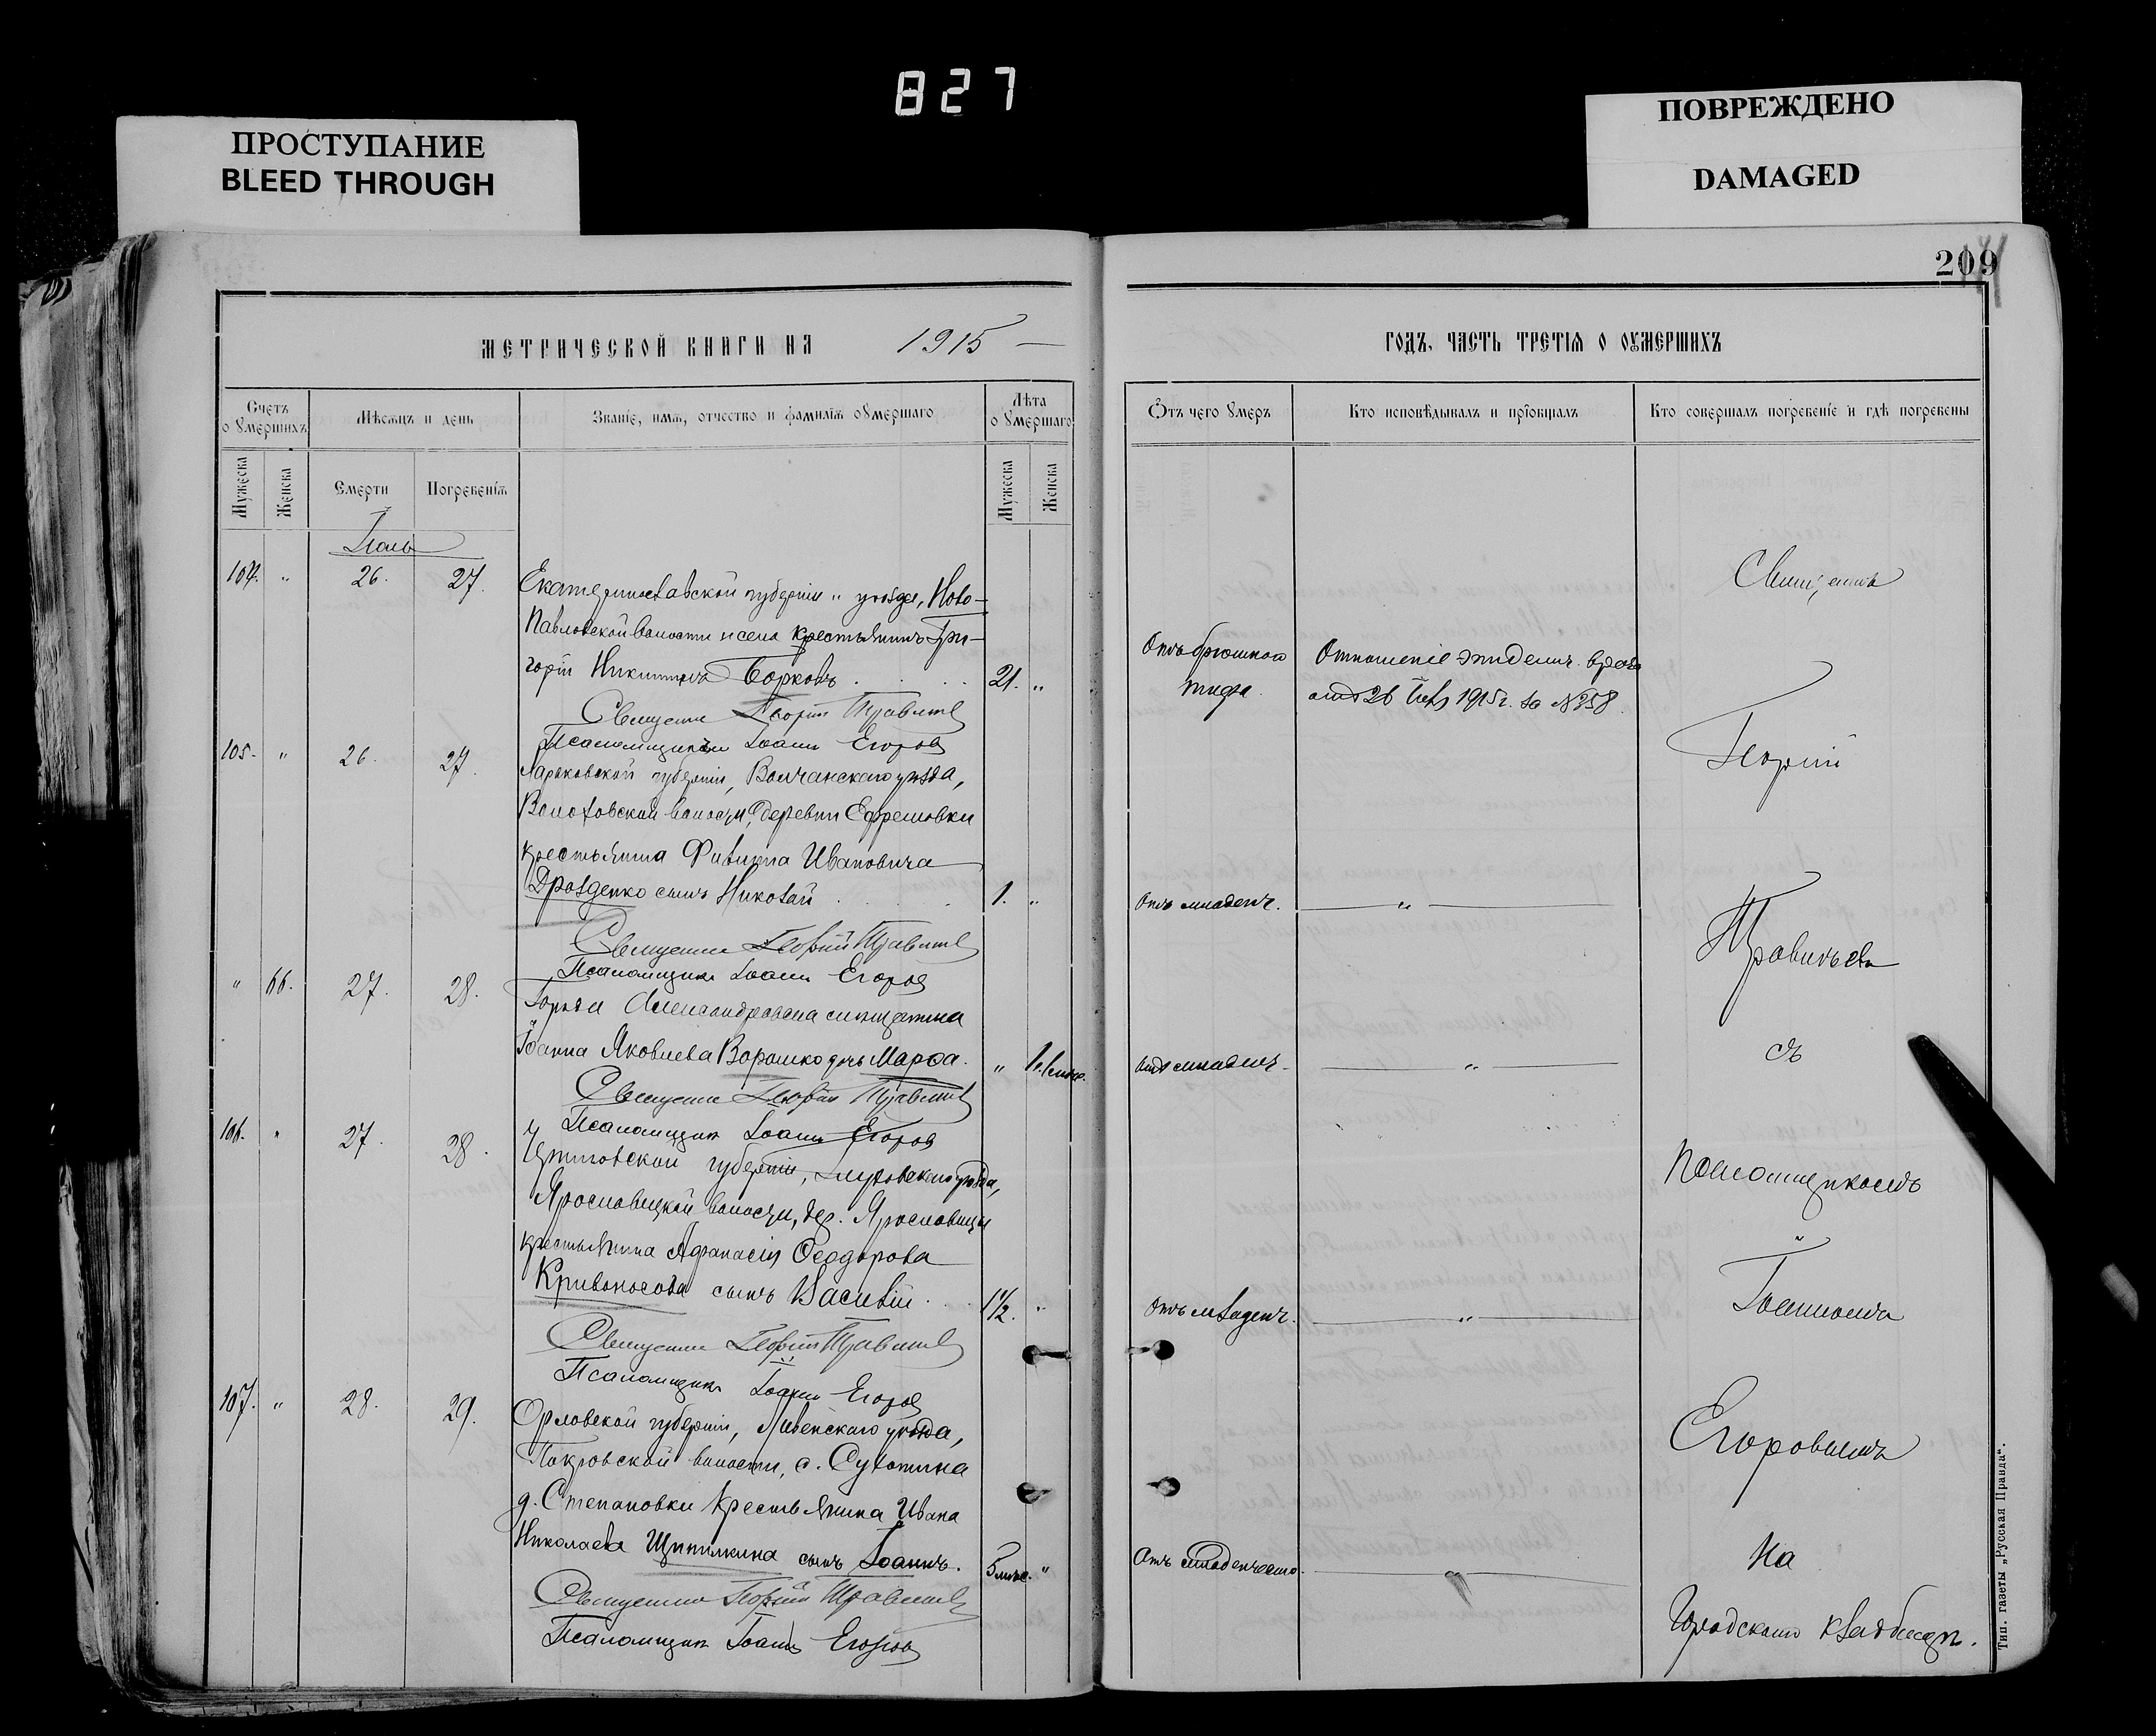 827
ПРОСТУПАНИЕ
BLEED THROUGH
ПОВРЕЖДЕНО
DAMAGED
209
МЕТРИЧЕСКОЙ КНИГИ НА 1915
Счетъ о умершихъ
Мѣсяцъ и день
Званіе, имя, отчество и фамилія умершаго
Лѣта умершаго
Мужеска
Женска
Смерти
Погребенія
Мужеска
Женска
Іюль
104. " 26. 27.
Екатеринославской губерніи " уѣзда, Ново-
Павловской волости и села крестьянинъ Гри-
горій Никитинъ Борковъ 21. "
Священникъ Георгій Правильевъ
Псаломщикъ Іоаннъ Егоровъ
105. " 26. 27.
Харьковской губерніи, Волчанскаго уѣзда,
Волоховской волости, деревни Ефремовки
крестьянина Филиппа Ивановича
Дрозденко сынъ Николай 1. "
Священникъ Георгій Правильевъ
Псаломщикъ Іоаннъ Егоровъ
" 66. 27. 28.
Александровска мѣщанина
Іоанна Яковлева Ворошко дочь Марѳа. "
Священникъ Георгій Правильевъ
Псаломщикъ Іоаннъ Егоровъ
106. " 27. 28.
Черниговской губерніи, уѣзда,
Ярославецкой волости, дер. Ярославецъ
крестьянина Афанасія Ѳеодорова
Кривоносова сынъ Василій 1½. "
Священникъ Георгій Правильевъ
Псаломщикъ Іоаннъ Егоровъ
107. " 28. 29.
Орловской губерніи, Ливенскаго уѣзда,
Покровской волости, с.
д. Степановки крестьянина Ивана
Николаева Щипилкина сынъ Іоаннъ. 5 мѣс. "
Священникъ Георгій Правильевъ
Псаломщикъ Іоаннъ Егоровъ
ГОДЪ, ЧАСТЬ ТРЕТІЯ О ОУМЕРШИХЪ
Отъ чего умеръ
Кто исповѣдывалъ и пріобщалъ
Кто совершалъ погребеніе и гдѣ погребены
Отъ брюшного
тифа.
Отношеніе эпидемич. врача
отъ 26 1915 г. за № 358.
Отъ младенч. "
Отъ младенч. "
Отъ младенч. "
Отъ младенчества. "
Священникъ
Георгій
Правильевъ
съ
псаломщикомъ
Іоанномъ
Егоровымъ
на
Городскомъ кладбищѣ.
Тип. газеты „Русская Правда".